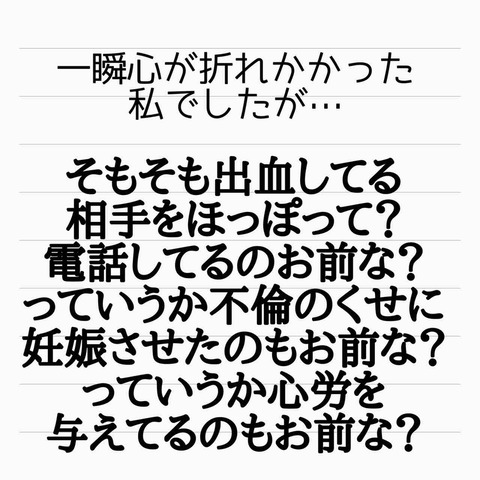 一瞬心が折れかかった
私でしたが…
そもそも出血してる
相手をほっぽって?
電話してるのお前な?
っていうか不倫のくせに
妊娠させたのもお前な?
っていうか心労を
与えてるのもお前な?